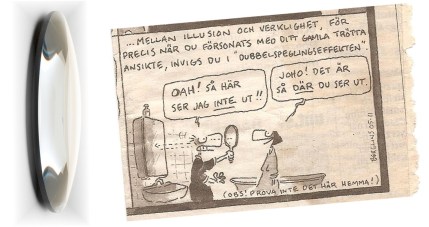 ...MELLAN ILLUSION OCH VERKLIGHET, FÖR
PRECIS NÄR DU FÖRSONATS MED DITT GAMLA TRÖTTA
ANSIKTE, INVIGS DU I "DUBBELSPEGLINGSEFFEKTEN".
OAH! SÅ HÄR
SER JAG INTE UT!!
JOHO! DET ÄR
SÅ DÄR DU SER UT.
BERGLINS 05-11
(OBS! PROVA INTE DET HÄR HEMMA!)